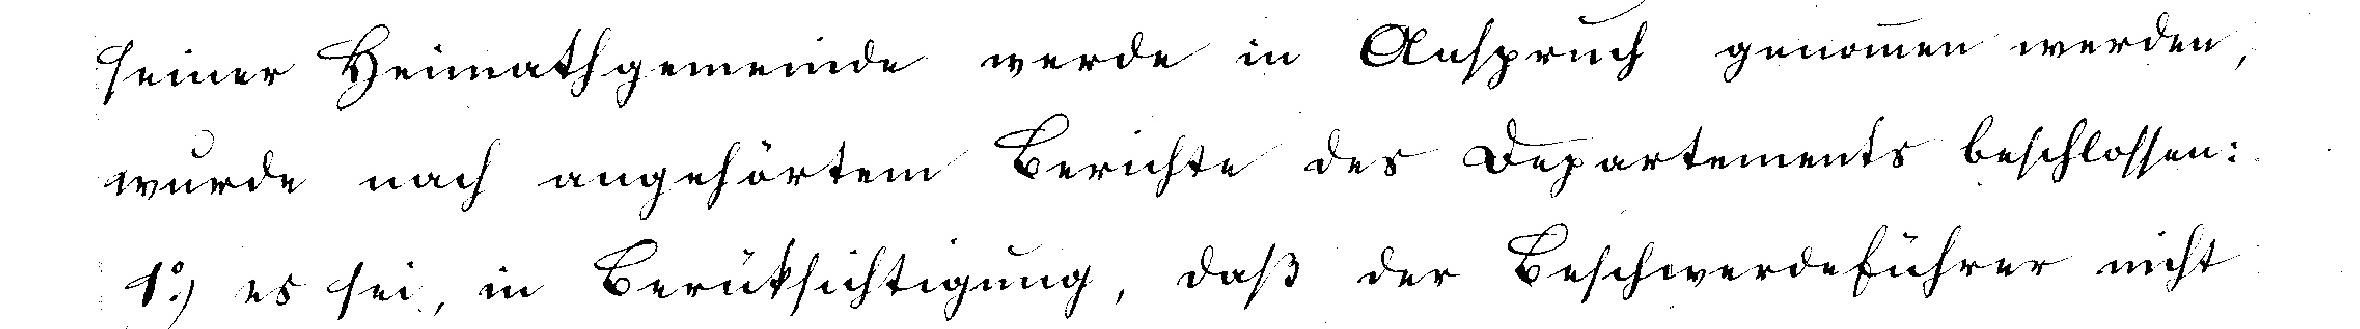 seiner Heimathgemeinde werde in Anspruch genom̅en werden,
wurde nach angehörtem Berichte des Departements beschlossen:
1o.) es sei, in Berüksichtigung, daß der Beschwerdeführer nicht